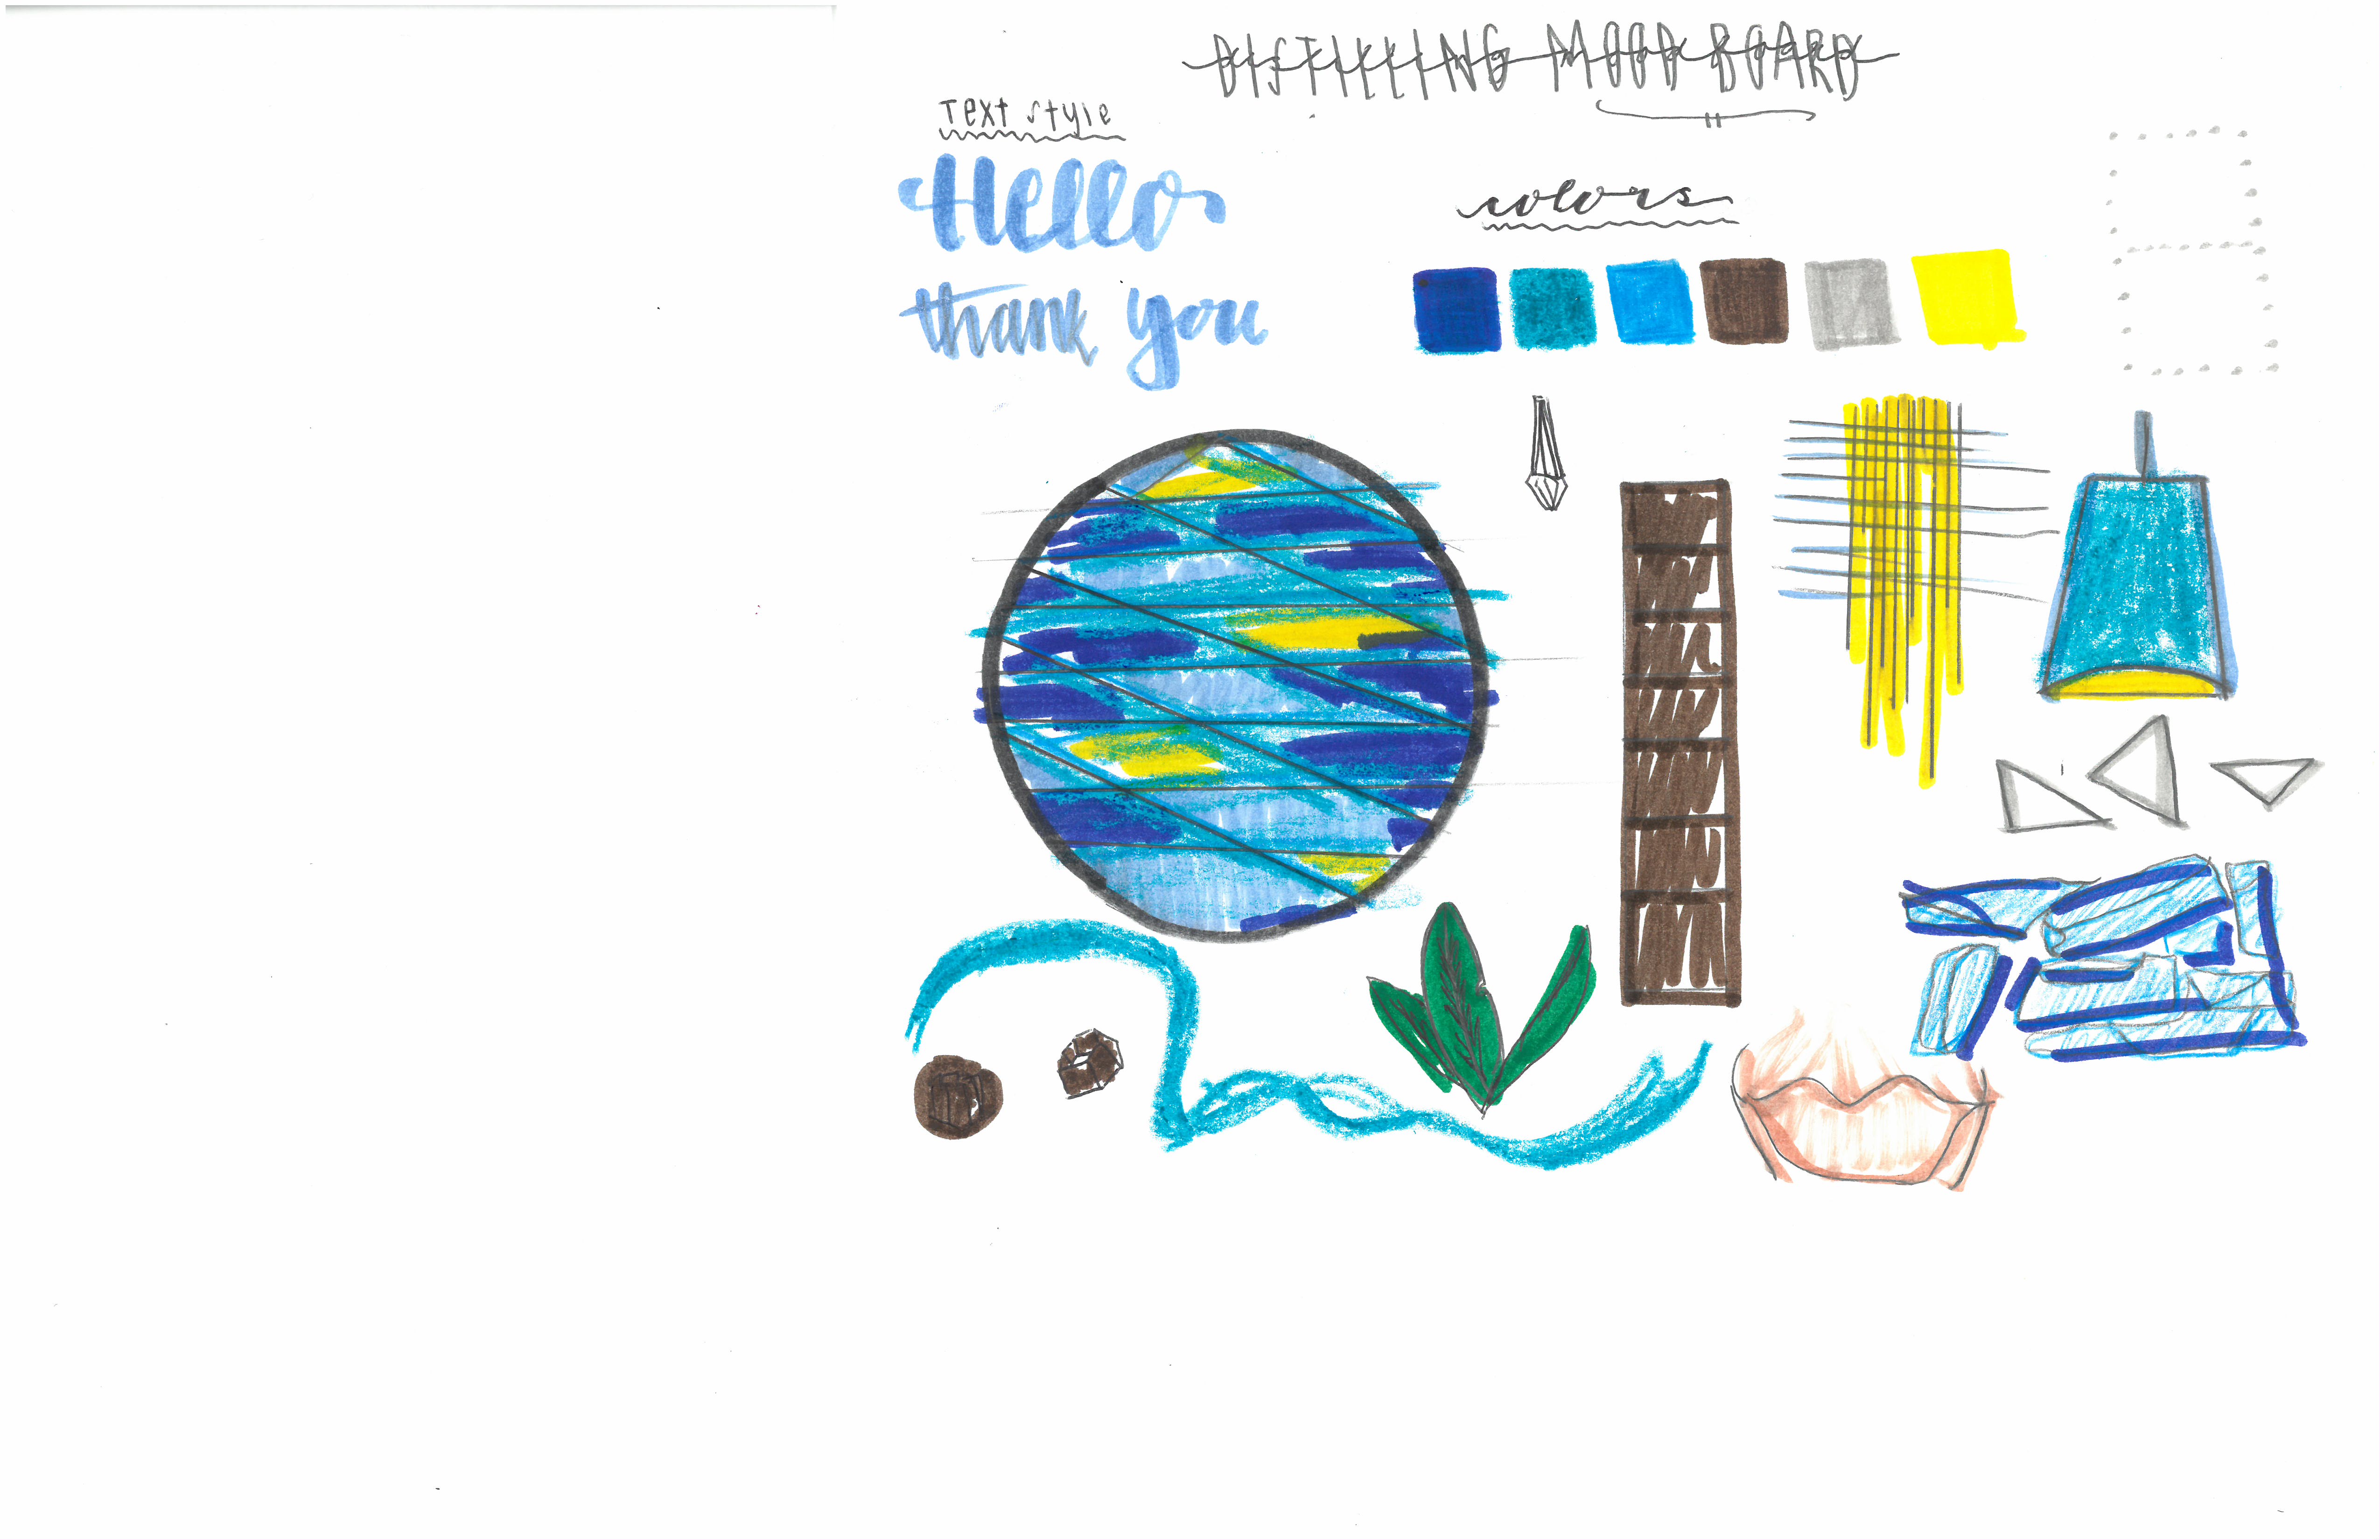 DISTILLING MOOD BOARD
Text style
Hello
thank you
colors